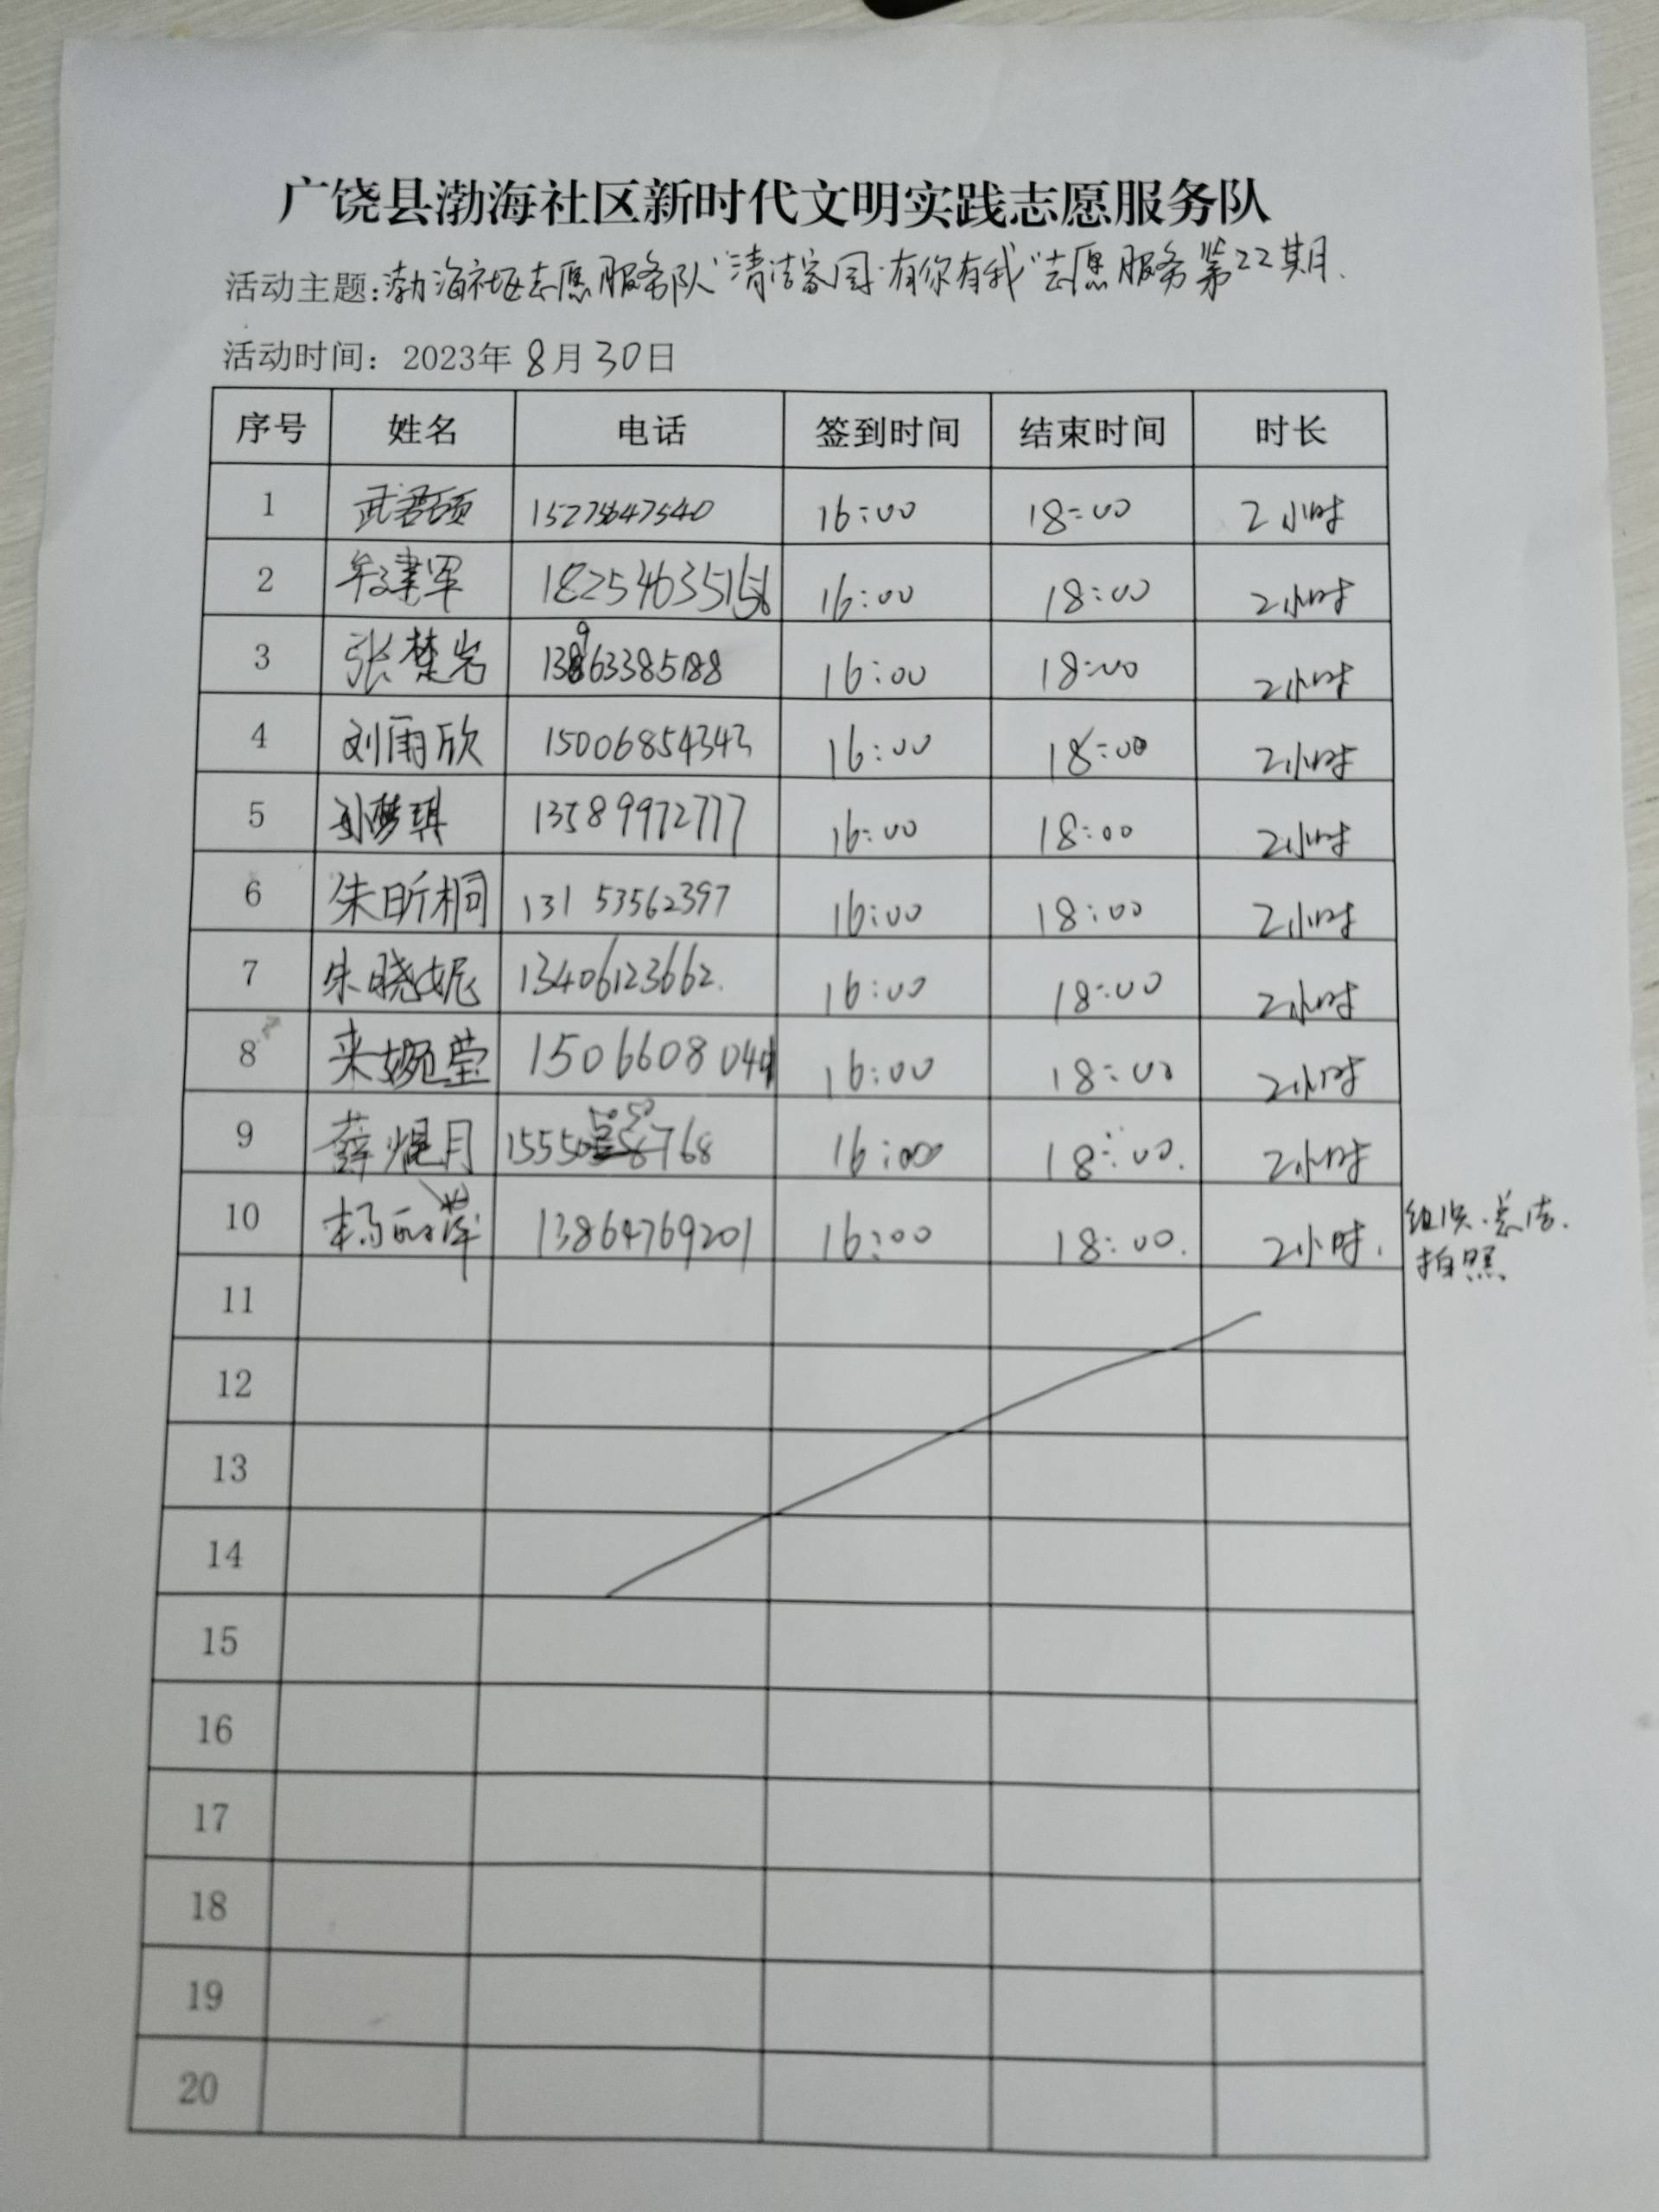 广饶县渤海社区新时代文明实践志愿服务队
活动主题:渤海社区志愿服务队“清洁家园·有你有我”志愿服务第22期
活动时间：2023年8月30日
序号 姓名 电话 签到时间 结束时间 时长
1 武君硕 15275647540 16:00 18:00 2小时
2 牟建军 18254635156 16:00 18:00 2小时
3 张楚岩 16:00 18:00 2小时
4 刘雨欣 15006854343 16:00 18:00 2小时
5 孙梦琪 13589972777 16:00 18:00 2小时
6 朱昕桐 131 53562397 16:00 18:00 2小时
7 朱晓妮 13406123662. 16:00 18:00 2小时
8 来婉莹 16:00 18:00 2小时
9 16:00 18:00. 2小时
10 13864769201 16:00 18:00. 2小时. 组织.总结.
拍照
11
12
13
14
15
16
17
18
19
20